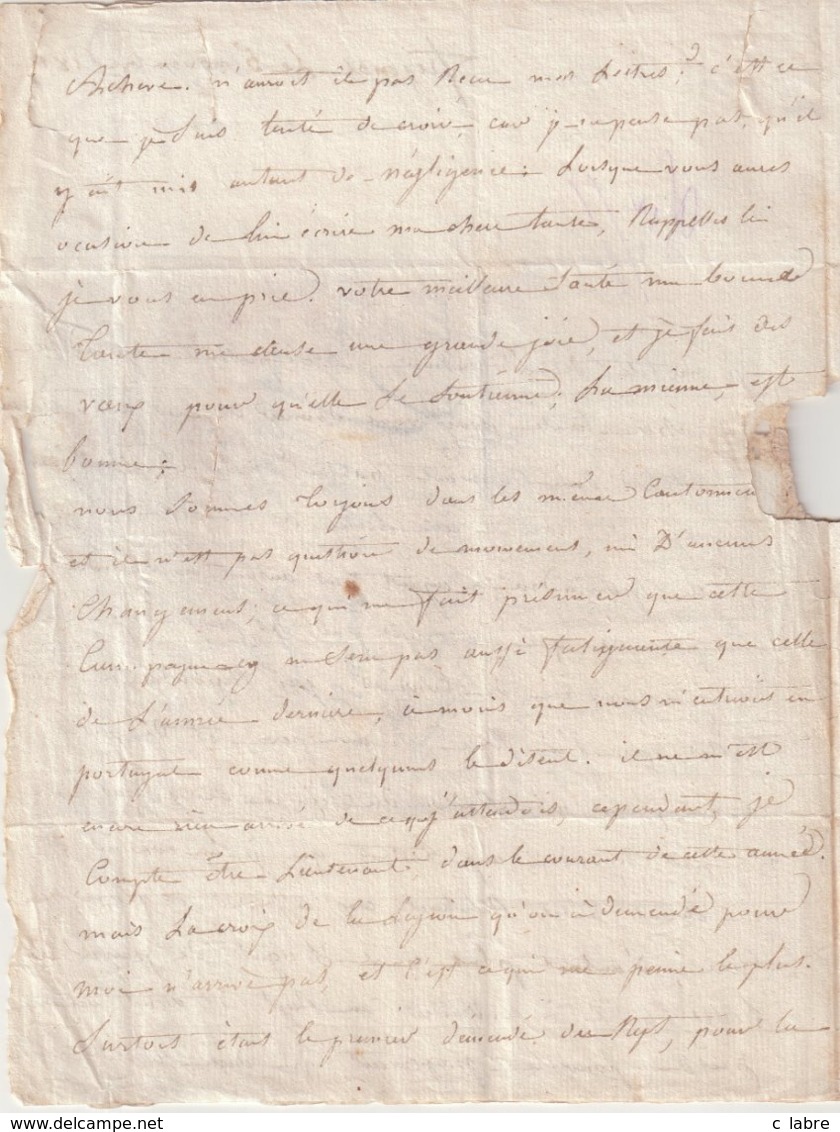 Achevé. n'auroit il pas Recu mes Lettres; c'est ce
que je suis tenté de croire, car je ne pense pas, qu'il
y ait mis autant de négligence; Lorsque vous aurez
ocasion de lui écrire ma chere tante, Rappelles lui
je vous en prie. votre meillaure santé ma bonne
tante me cause une grande joie, et je fais des
vœux pour qu'elle se soutienne; La mienne, est
bonne;
nous sommes toujours dans les même Cantonnem
et il n'est pas question de mouvement, ni D'aucuns
Changement; ce qui me fait présumer que cette
Campagne ne sera pas aussi fatiguante que celle
de L'année derniere, à moins que nous n'entrions en
portugal comme quelquuns le disent. il ne m'est
encore rien arrivé de ce que j'attendois, cependant, je
Compte être Lieutenant dans le courant de cette année.
mais La croix de la Legion qu'on a demandé pour
moi n'arrive pas, et c'est ce qui me peine le plus.
Surtout étant le premier demandé du Regt, pour la
c labre